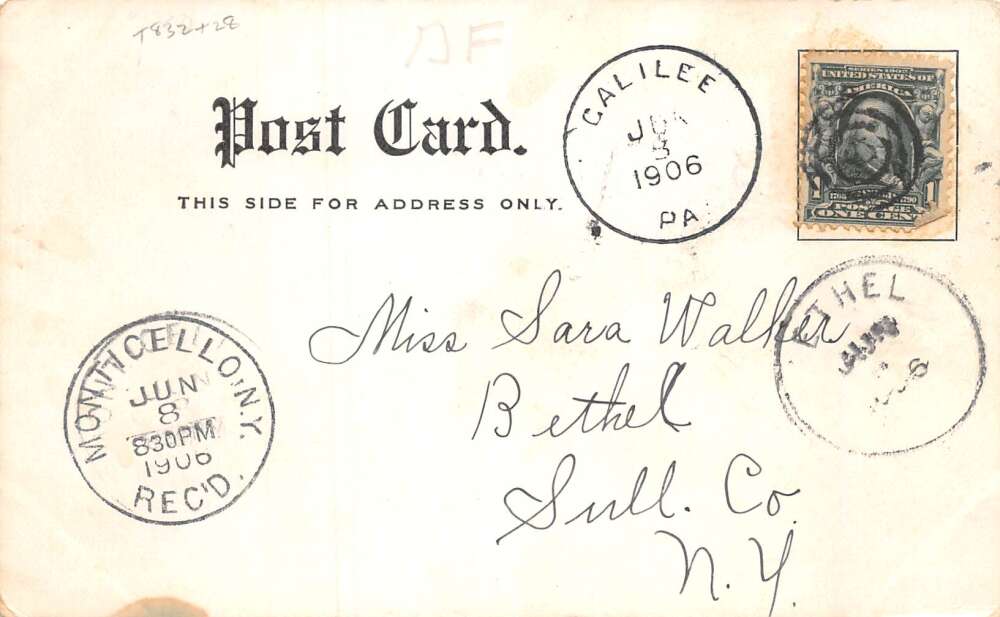 T832+28
Post Card.
THIS SIDE FOR ADDRESS ONLY.
GALILEE
JUN
1906
PA
SERIES 1902
UNITED STATES OF
AMERICA
1 1
POSTAGE
ONE CEN
Miss Sara Walker
Bethel
Sull. Co.
N. Y.
ETHEL
JUN
MONTICELLO, N.Y.
JUN
8
830PM
1906
REC'D.